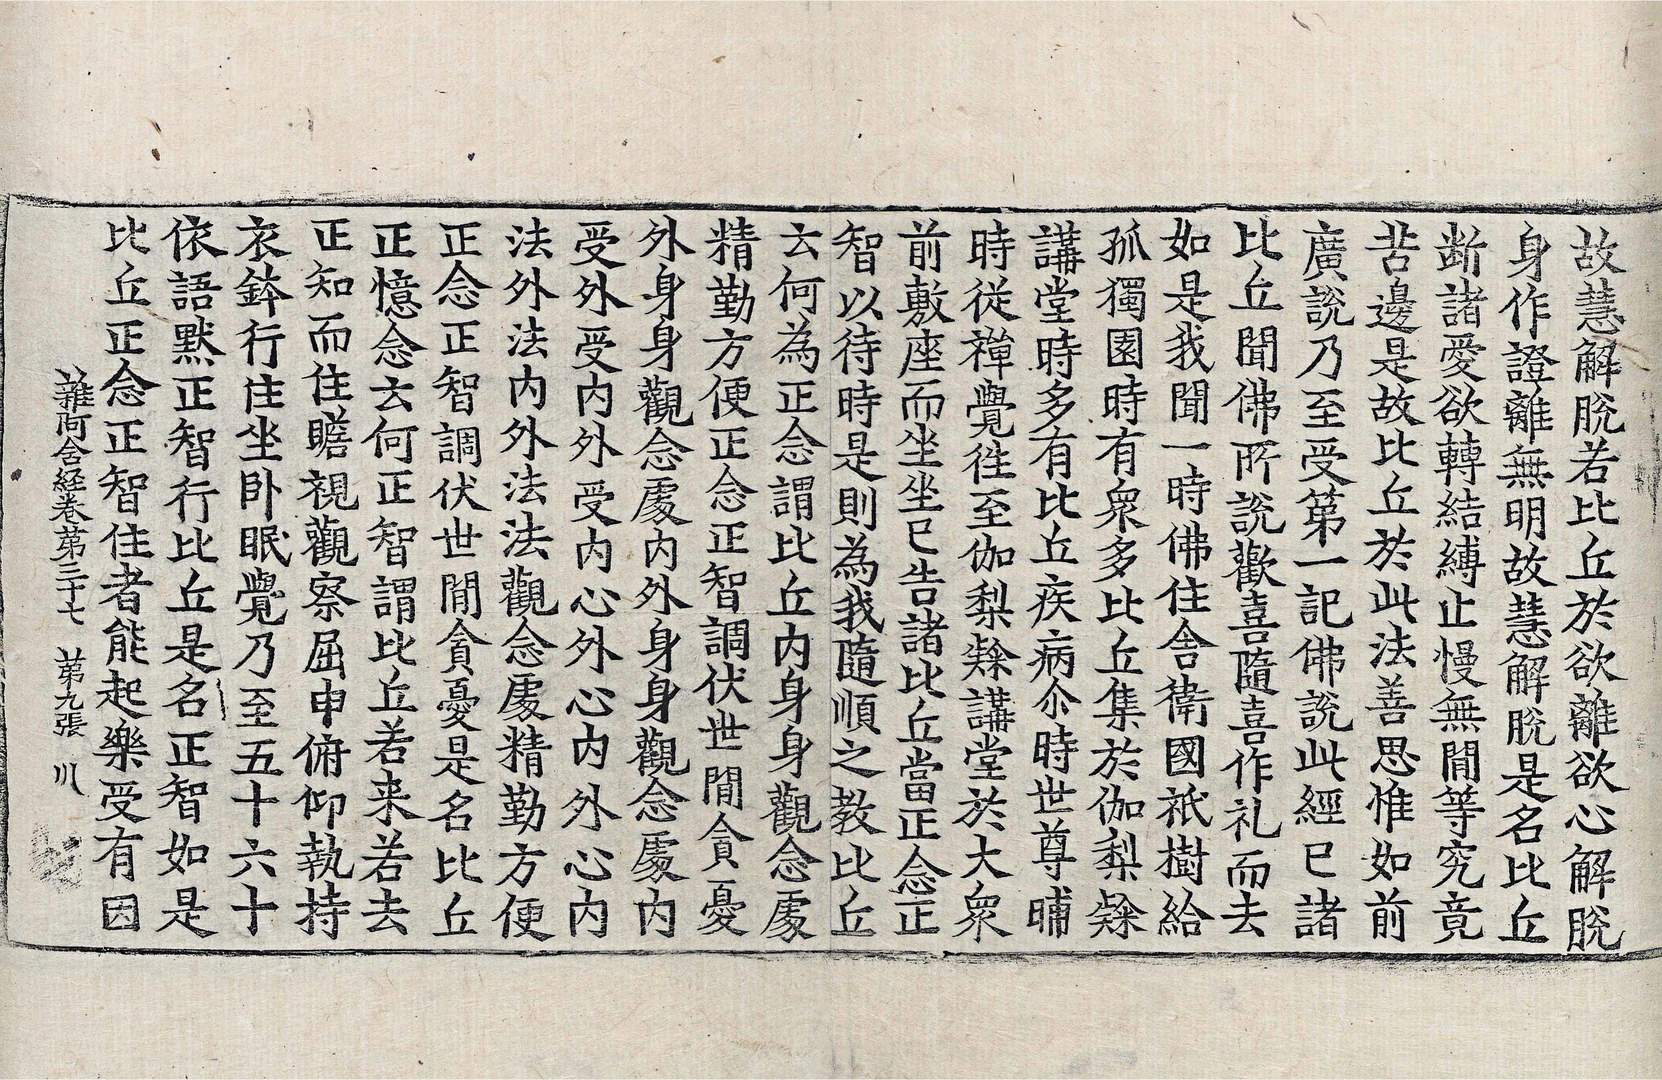 故慧解脫若比丘於欲離欲心解脫
身作證離無明故慧解脫是名比丘
斷諸愛欲轉結縛止慢無間等究竟
苦邊是故比丘於此法善思惟如前
廣說乃至受第一記佛說此經已諸
比丘聞佛所說歡喜隨喜作礼而去
如是我聞一時佛住舍衛國祇樹給
孤獨園時有衆多比丘集於伽梨隸
講堂時多有比丘疾病尒時世尊晡
時従禪覺徃至伽梨隸講堂於大衆
前敷座而坐坐已告諸比丘當正念正
智以待時是則為我隨順之教比丘
云何為正念謂比丘内身身觀念處
精勤方便正念正智調伏世間貪憂
外身身觀念處内外身身觀念處内
受外受内外受内心外心内外心内
法外法内外法法觀念處精勤方便
正念正智調伏世間貪憂是名比丘
正憶念云何正智謂比丘若来若去
正知而住瞻視觀察屈申俯仰執持
衣鉢行住坐卧眠覺乃至五十六十
依語默正智行比丘是名正智如是
比丘正念正智住者能起樂受有因
雜阿含経卷第三十七 第九張 川